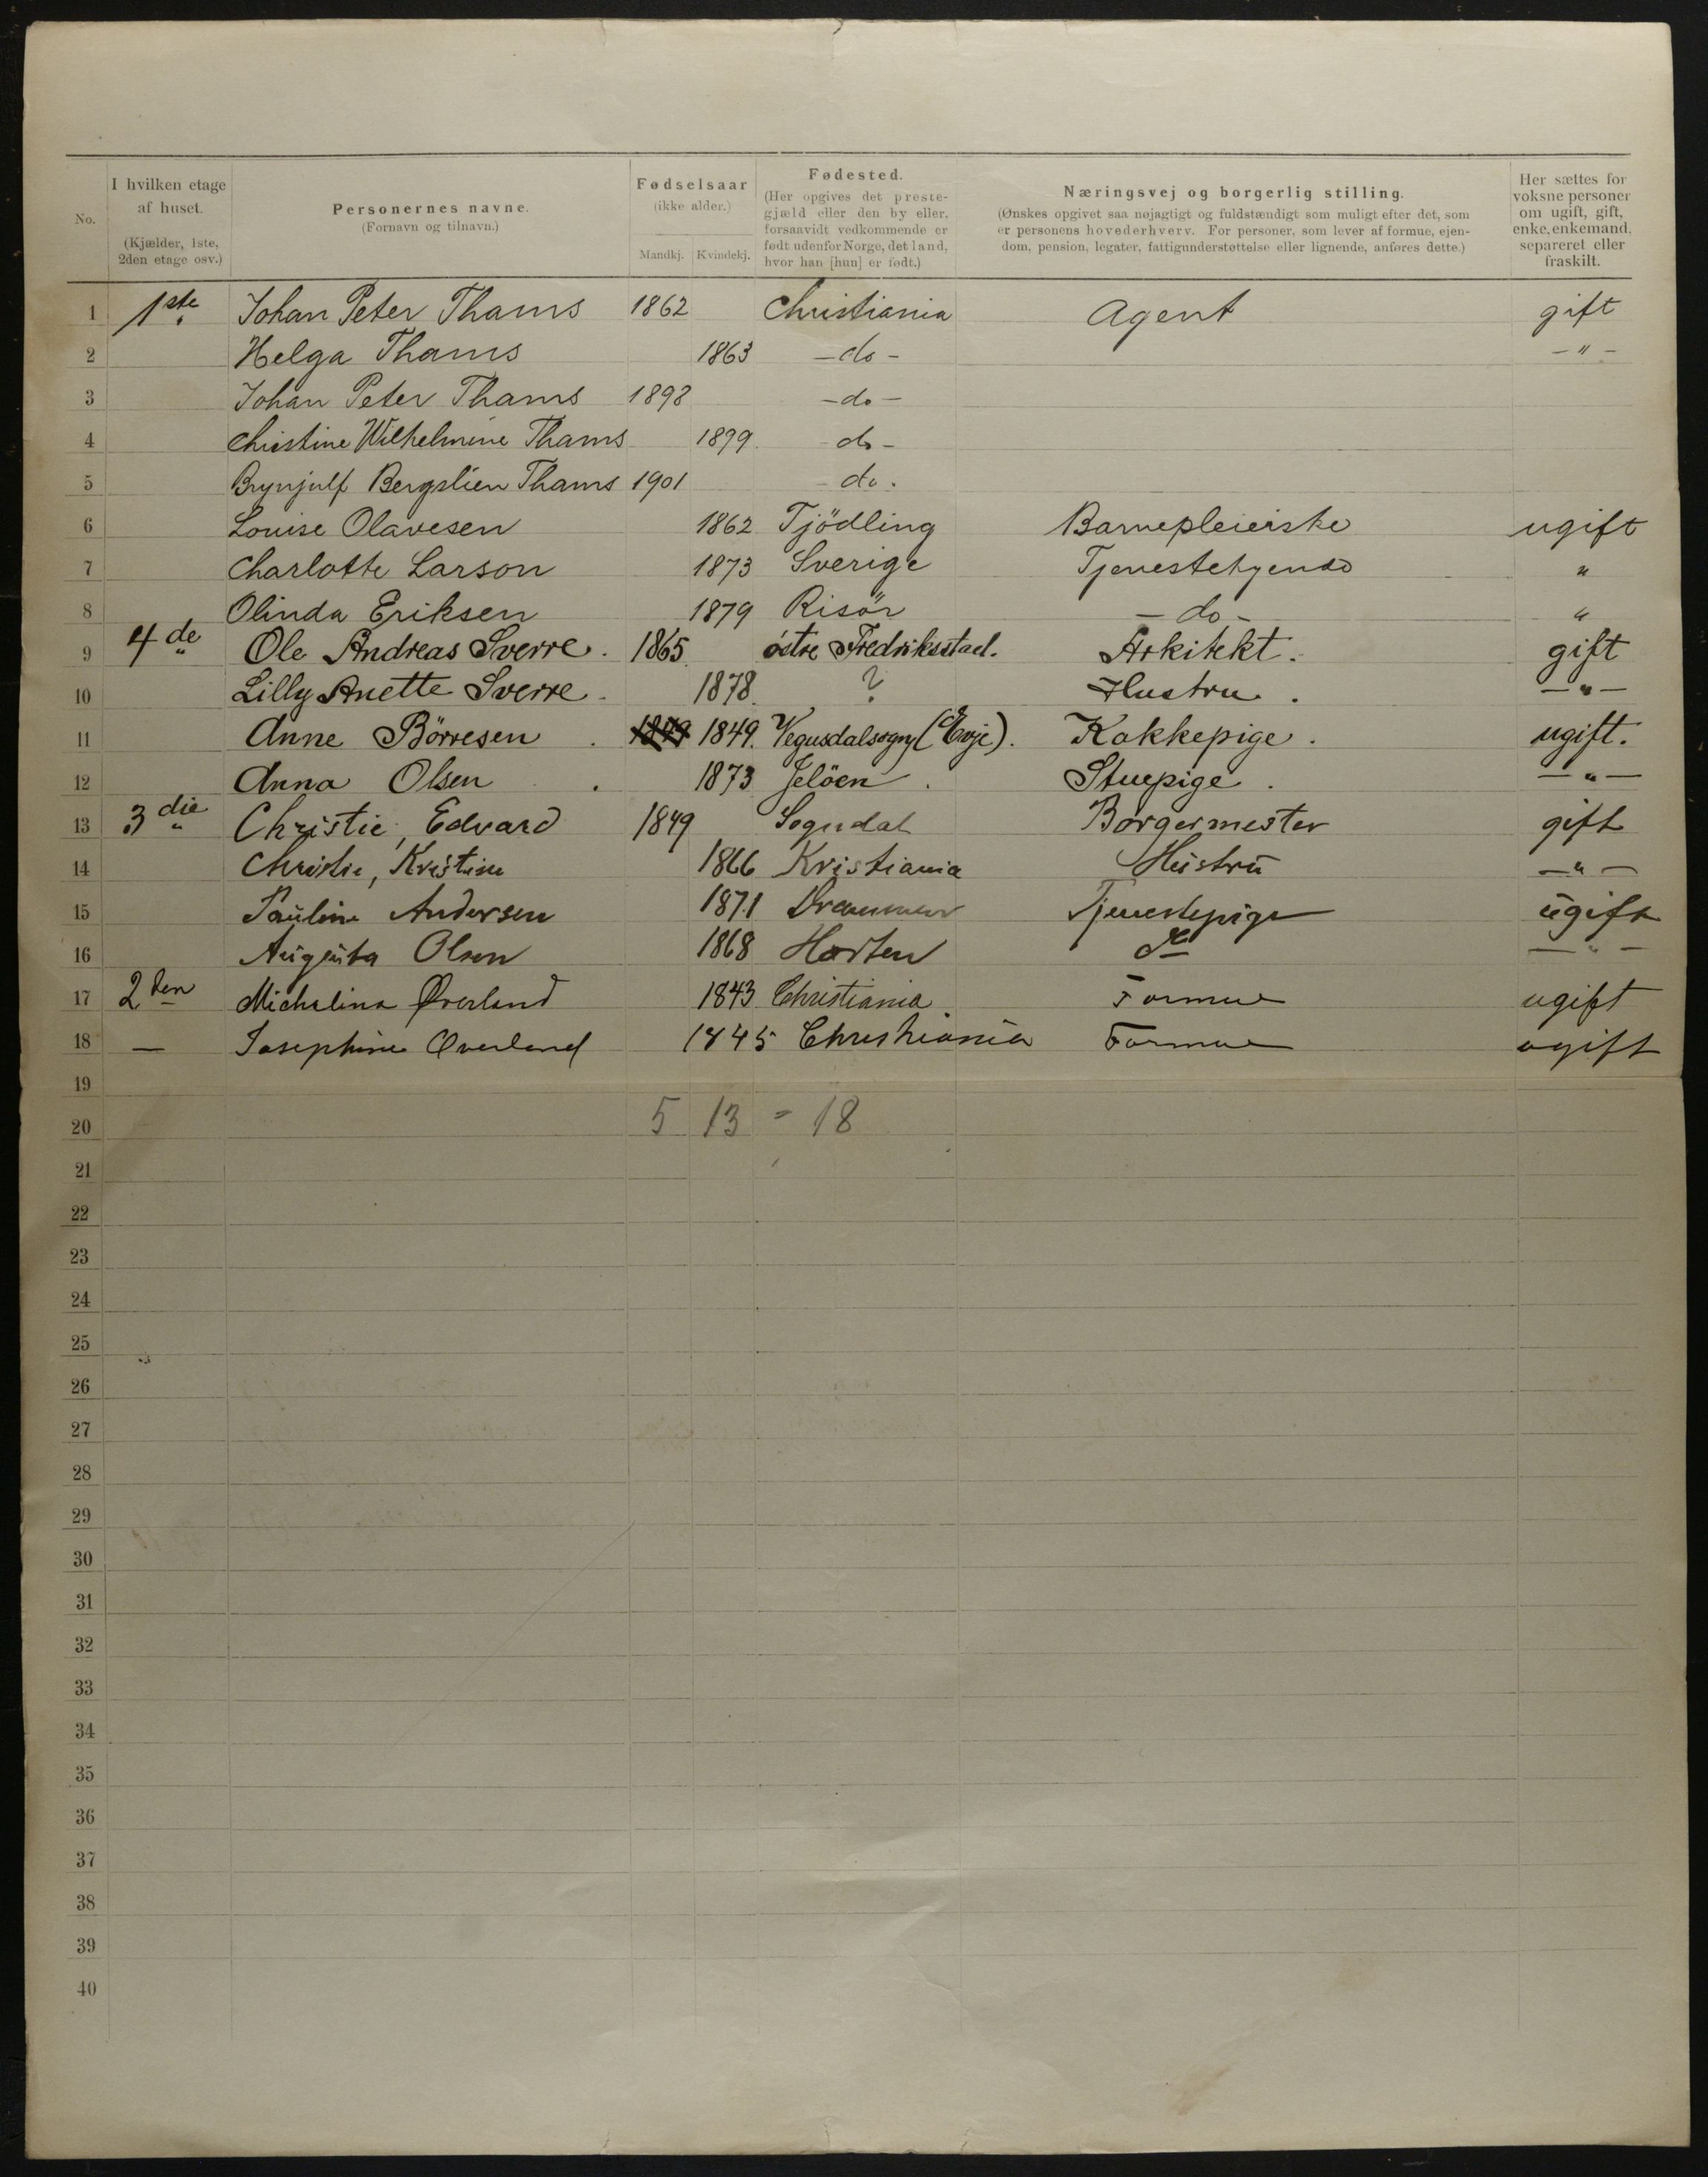 No. | I hvilken etage af huset. (Kjælder, 1ste, 2den etage osv.) | Personernes navne. (Fornavn og tilnavn.) | Fødselsaar (ikke alder.) Mandkj. | Kvindekj. | Fødested. (Her opgives det prestegjæld eller den by eller, forsaavidt vedkommende er født udenfor Norge, det land, hvor han [hun] er født.) | Næringsvej og borgerlig stilling. (Ønskes opgivet saa nøjagtigt og fuldstændigt som muligt efter det, som er personens hovederhverv. For personer, som lever af formue, ejendom, pension, legater, fattigunderstøttelse eller lignende, anføres dette.) | Her sættes for voksne personer om ugift, gift, enke, enkemand, separeret eller fraskilt.
1 1ste Johan Peter Thams 1862 Christiania Agent gift
2 Helga Thams 1863 – do – – " –
3 Johan Peter Thams 1898 – do –
4 Christine Wilhelmine Thams 1899 – do –
5 Brynjulf Bergslien Thams 1901 – do.
6 Louise Olavesen 1862 Tjödling Barnepleierske ugift
7 Charlotte Larson 1873 Sverige Tjenestetyende "
8 Olinda Eriksen 1879 Risör – do – "
9 4de Ole Andreas Sverre. 1865 östre Fredriksstad. Arkitekt. gift
10 Lilly Anette Sverre. 1878. ? Hustru. – " –
11 Anne Börresen. 1849 1849. Vegusdalsogn (Evje). Kokkepige. ugift.
12 Anna Olsen. 1873 Jelöen. Stuepige. – " –
13 3die Christie, Edvard 1849 Sogndal Borgermester gift
14 Christie, Kristine 1866 Kristiania Hustru – " –
15 Pauline Andersen 1871 Drammen Tjenestepige ugift
16 Augusta Olsen 1868 Horten do – " –
17 2den Michaline Øverland 1843 Christiania Formue ugift
18 — Josephine Øverland 1845 Christiania Formue ugift
19
20 5 13 = 18
21
22
23
24
25
26
27
28
29
30
31
32
33
34
35
36
37
38
39
40